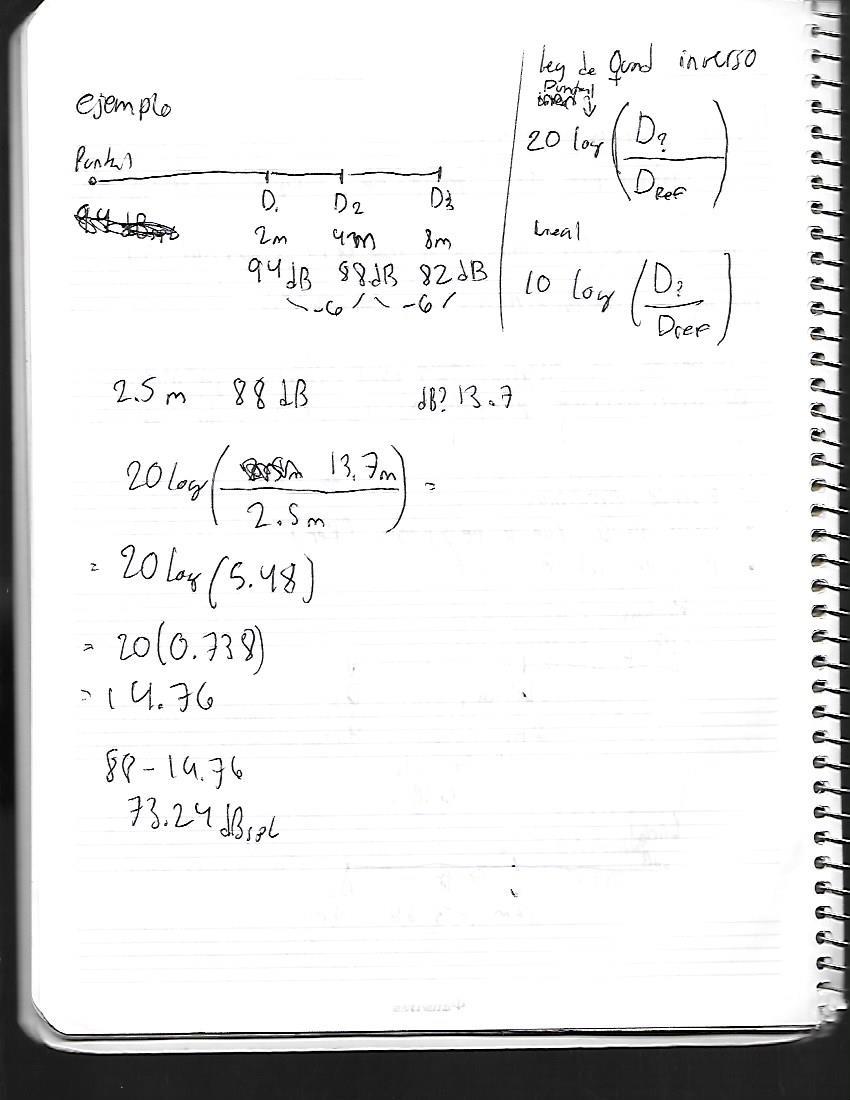 ejemplo
Puntual
D1 D2 D3
2m 4m 8m
94dB 88dB 82dB
-6 -6
Ley de Quad inverso
Puntual
20 log (D? / DRef)
lineal
10 log (D? / Dref)
2.5 m 88 dB dB? 13.7
20 log (13.7m / 2.5m) =
= 20 log (5.48)
= 20(0.738)
= 14.76
88 - 14.76
73.24 dBspl